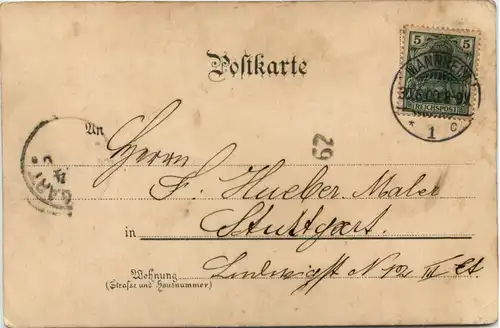 Postkarte
5 5
REICHSPOST
MANNHEIM
1 c
An
Herrn
62
F. Hueber Maler
in Stuttgart.
Ludwigst N 12 III St
Wohnung
(Straße und Hausnummer)